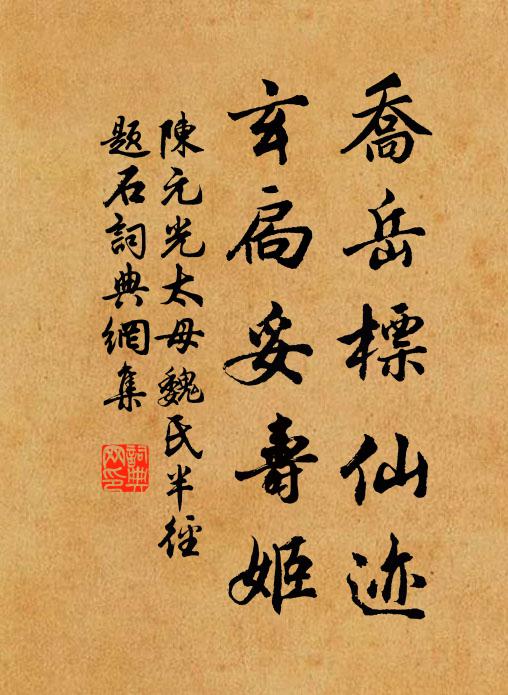 喬岳標仙迹
玄扃妥壽姬
陳元光太母魏氏半徑
题石詞典網集
詞典網印